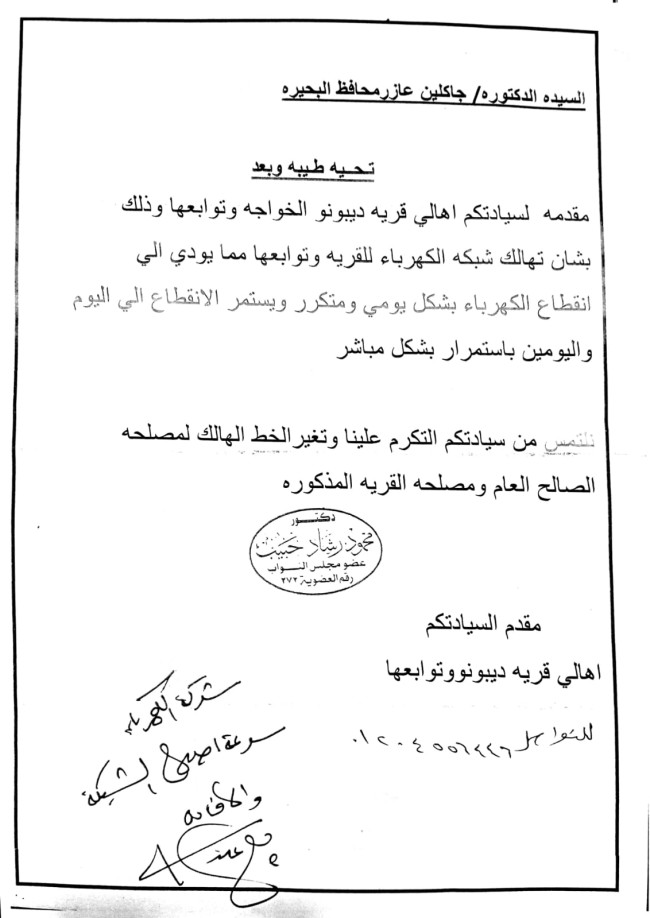 السيده الدكتوره/ جاكلين عازر محافظ البحيره
تحيه طيبه وبعد
مقدمه لسيادتكم اهالي قريه ديبونو الخواجه وتوابعها وذلك
بشان تهالك شبكه الكهرباء للقريه وتوابعها مما يودي الي
انقطاع الكهرباء بشكل يومي ومتكرر ويستمر الانقطاع الي اليوم
واليومين باستمرار بشكل مباشر
نلتمس من سيادتكم التكرم علينا وتغير الخط الهالك لمصلحه
الصالح العام ومصلحه القريه المذكوره
دكتور
محمود رشاد خبيت
عضو مجلس النواب
رقم العضوية ٢٧٢
مقدم السيادتكم
اهالي قريه ديبونووتوابعها
للتواصل ٠١٢٠٤٥٥٦٤٢٦
شركة الكهرباء
سرعة اصلاح الشبكة
والافادة